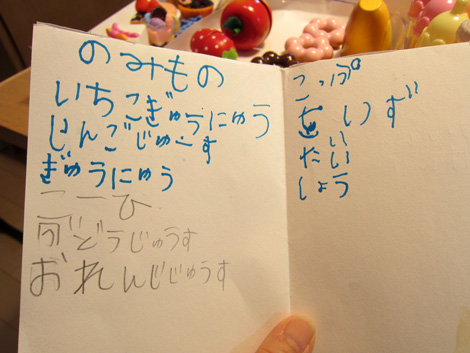 のみもの
いちごぎゅうにゅう
りんごじゅーす
ぎゅうにゅう
こーひ
ぶどうじゅうす
おれんじじゅうす
こっぷ
さいず
だい
しょう